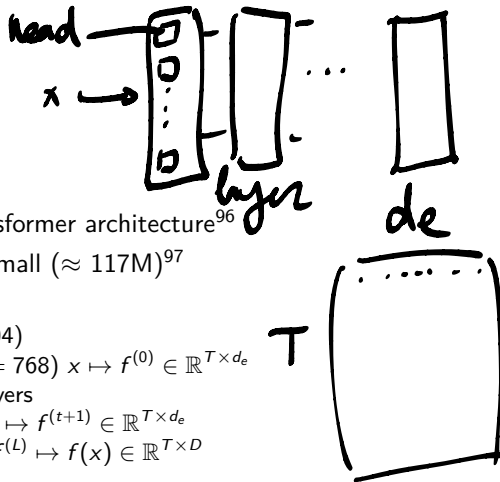 head
x
...
layer
de
sformer architecture⁹⁶
mall (≈ 117M)⁹⁷
T
04)
= 768) x ↦ f⁽⁰⁾ ∈ ℝ^{T×d_e}
yers
↦ f⁽ᵗ⁺¹⁾ ∈ ℝ^{T×d_e}
⁽ᴸ⁾ ↦ f(x) ∈ ℝ^{T×D}